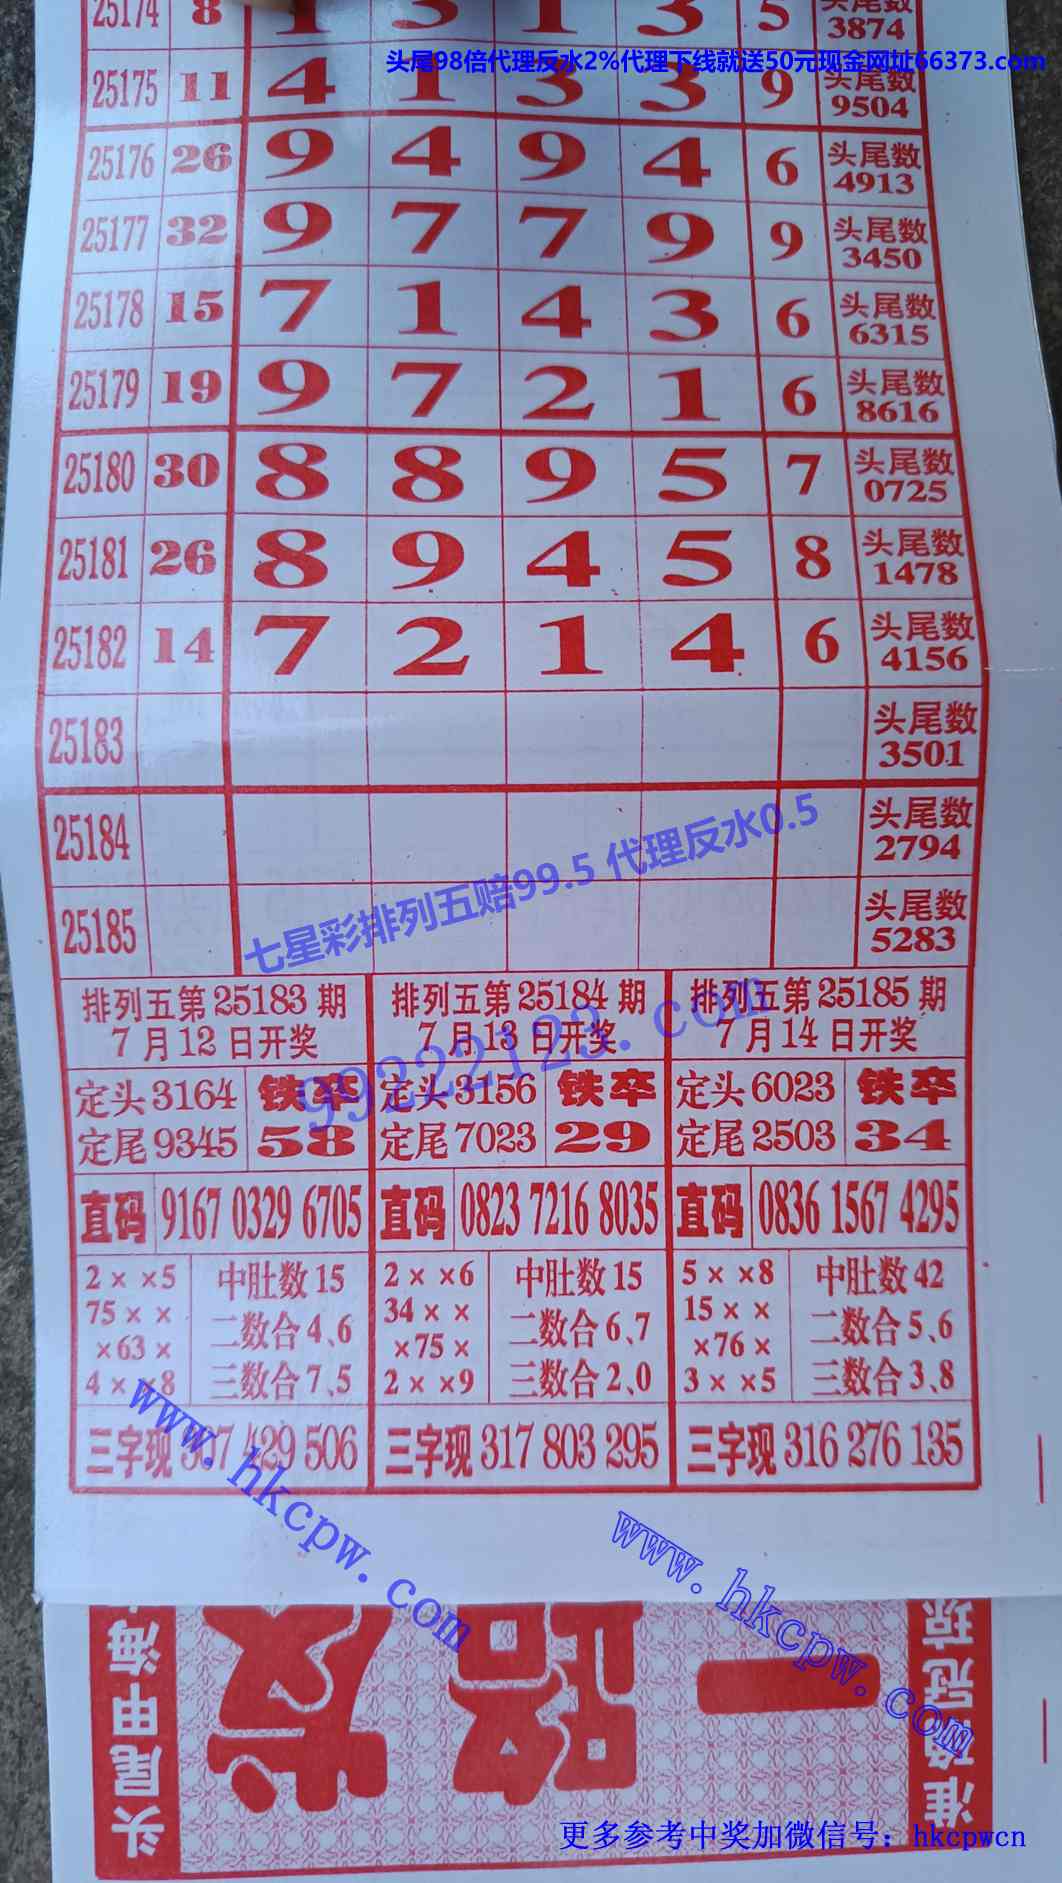 25174 8 1 3 1 3 5 头尾数
3874
头尾98倍代理反水2%代理下线就送50元现金网址66373.com
25175 11 4 1 3 3 9 头尾数
9504
25176 26 9 4 9 4 6 头尾数
4913
25177 32 9 7 7 9 9 头尾数
3450
25178 15 7 1 4 3 6 头尾数
6315
25179 19 9 7 2 1 6 头尾数
8616
25180 30 8 8 9 5 7 头尾数
0725
25181 26 8 9 4 5 8 头尾数
1478
25182 14 7 2 1 4 6 头尾数
4156
25183 头尾数
3501
25184 头尾数
2794
25185 头尾数
5283
七星彩排列五赔99.5 代理反水0.5
99222123.com
排列五第25183期
7月12日开奖
定头3164 铁卒
定尾9345 58
直码 9167 0329 6705
2××5 中肚数15
75×× 二数合4、6
×63×
4××8 三数合7、5
三字现 429 506
排列五第25184期
7月13日开奖
定头3156 铁卒
定尾7023 29
直码 0823 7216 8035
2××6 中肚数15
34×× 二数合6、7
×75×
2××9 三数合2、0
三字现 317 803 295
排列五第25185期
7月14日开奖
定头6023 铁卒
定尾2503 34
直码 0836 1567 4295
5××8 中肚数42
15×× 二数合5、6
×76×
3××5 三数合3、8
三字现 316 276 135
www.hkcpw.com
www.hkcpw.com
头尾甲海
一路发
准确冠琼
更多参考中奖加微信号：hkcpwcn